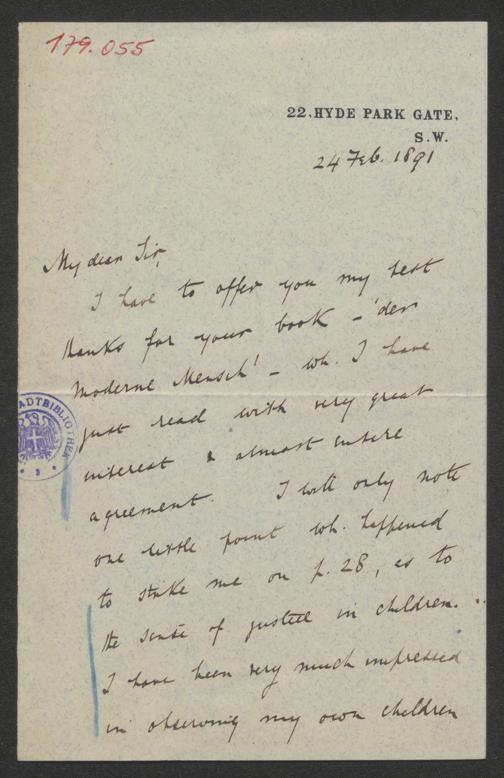 179.055
22, HYDE PARK GATE,
S.W.
24 Feb. 1891
My dear Sir,
I have to offer you my best
thanks for your book – 'der
Moderne Mensch' – wh. I have
just read with very great
interest & almost entire
agreement. I will only note
one little point wh. happened
to strike me on p. 28, as to
the sense of justice in children.
I have been very much impressed
in observing my own children
STADTBIBLIOTHEK